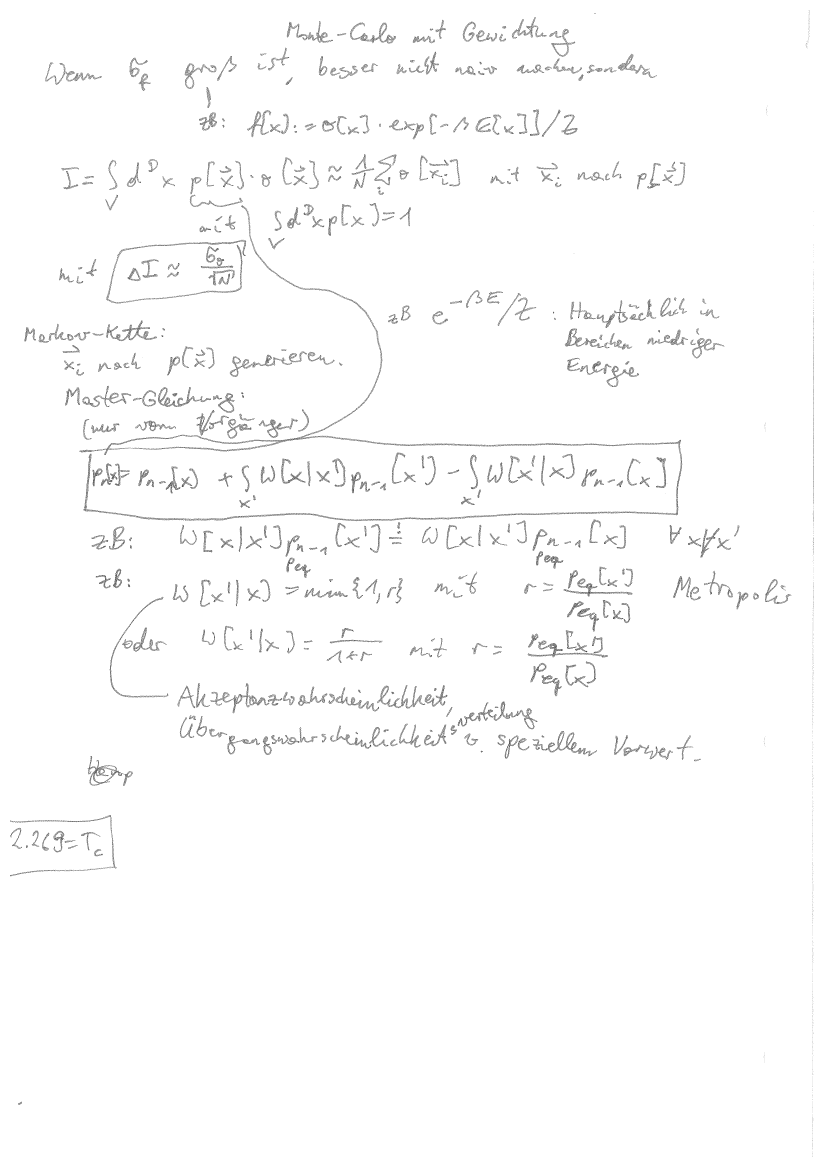 Monte-Carlo mit Gewichtung
Wenn σ_f groß ist, besser nicht naiv machen, sondern
zB: f[x] := σ[x] · exp[-βE[x]]/Z
I = ∫_V d^D x p[x⃗] · σ[x⃗] ≈ 1/N Σ_i σ[x⃗_i] mit x⃗_i nach p[x⃗]
mit ∫_V d^D x p[x] = 1
mit ΔI ≈ σ_σ/√N
zB e^{-βE}/Z : Hauptsächlich in
Bereichen niedriger
Energie
Markov-Kette:
x⃗_i nach p(x⃗) generieren.
Master-Gleichung:
(nur vom Vorgänger)
p_n[x] = p_{n-1}[x) + ∫_{x'} W[x|x'] p_{n-1}[x') - ∫_{x'} W[x'|x] p_{n-1}[x]
zB: W[x|x'] p_{n-1} [x'] =! W[x|x'] p_{n-1} [x] ∀ x≠x'
peq peq
zB: W[x'|x) = min{1,r} mit r = Peq[x']/Peq[x] Metropolis
oder W[x'|x) = r/(1+r) mit r = Peq[x']/Peq[x)
Akzeptanzwahrscheinlichkeit,
Übergangswahrscheinlichkeitsverteilung v. speziellem Vorwert.
2.269=T_c